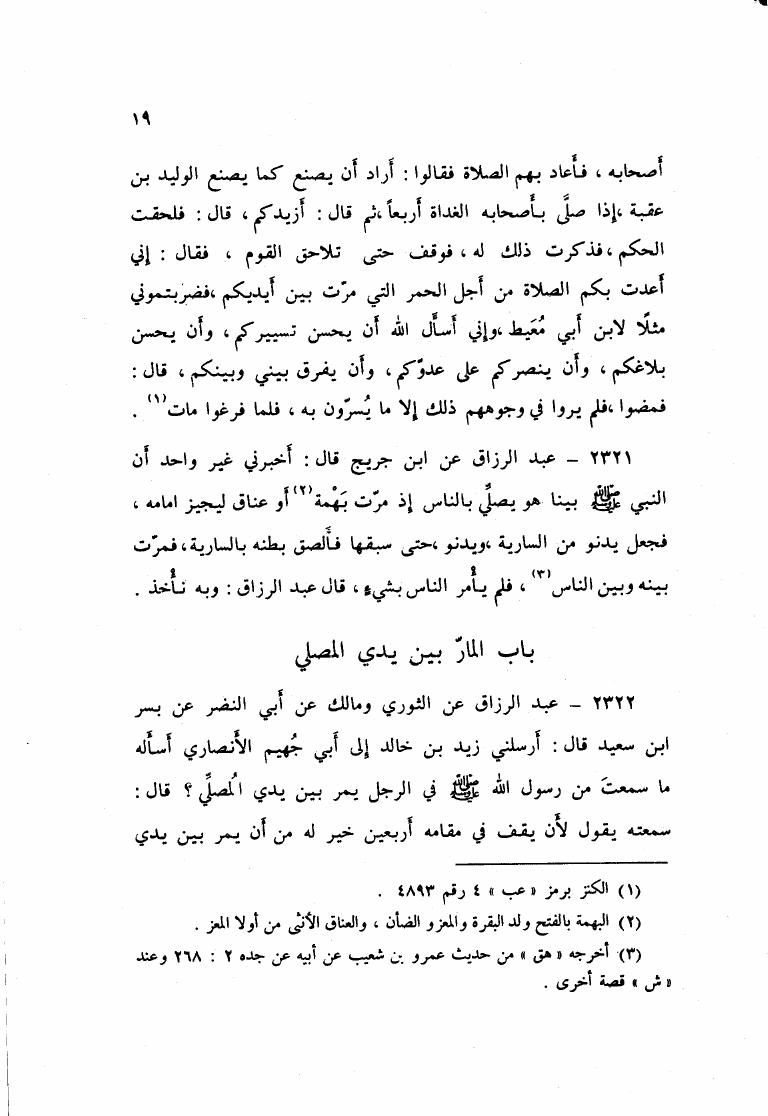 ١٩
أصحابه ، فأعاد بهم الصلاة فقالوا : أراد أن يصنع كما يصنع الوليد بن
عقبة ،إذا صلَّى بأصحابه الغداة أربعاً ،ثم قال : أزيدكم ، قال : فلحقت
الحكم ،فذكرت ذلك له ، فوقف حتى تلاحق القوم ، فقال : إني
أعدت بكم الصلاة من أجل الحمر التي مرّت بين أيديكم ،فضربتموني
مثلًا لابن أبي مُعَيط ،وإني أسأل الله أن يحسن تسييركم ، وأن يحسن
بلاغكم ، وأن ينصركم على عدوّكم ، وأن يفرق بيني وبينكم ، قال :
فمضوا ،فلم يروا في وجوههم ذلك إلا ما يُسرّون به ، فلما فرغوا مات(١) .
٢٣٢١ – عبد الرزاق عن ابن جريج قال : أخبرني غير واحد أن
النبي ﷺ بينا هو يصلِّي بالناس إذ مرّت بَهْمة(٢) أو عناق ليجيز امامه ،
فجعل يدنو من السارية ،ويدنو ،حتى سبقها فألصق بطنه بالسارية ، فمرّت
بينه وبين الناس(٣) ، فلم يأمر الناس بشيءٍ ، قال عبد الرزاق : وبه نأخذ .
باب المارّ بين يدي المصلي
٢٣٢٢ – عبد الرزاق عن الثوري ومالك عن أبي النضر عن بسر
ابن سعيد قال : أرسلني زيد بن خالد إلى أبي جُهيم الأنصاري أسأله
ما سمعتَ من رسول الله ﷺ في الرجل يمر بين يدي المُصلِّي ؟ قال :
سمعته يقول لأن يقف في مقامه أربعين خير له من أن يمر بين يدي
(١) الكنز برمز « عب » ٤ رقم ٤٨٩٣ .
(٢) البهمة بالفتح ولد البقرة والمعز و الضأن ، والعناق الأنثى من أولا المعز .
(٣) أخرجه « هق » من حديث عمرو بن شعيب عن أبيه عن جده ٢ : ٢٦٨ وعند
« ش » قصة أخرى .